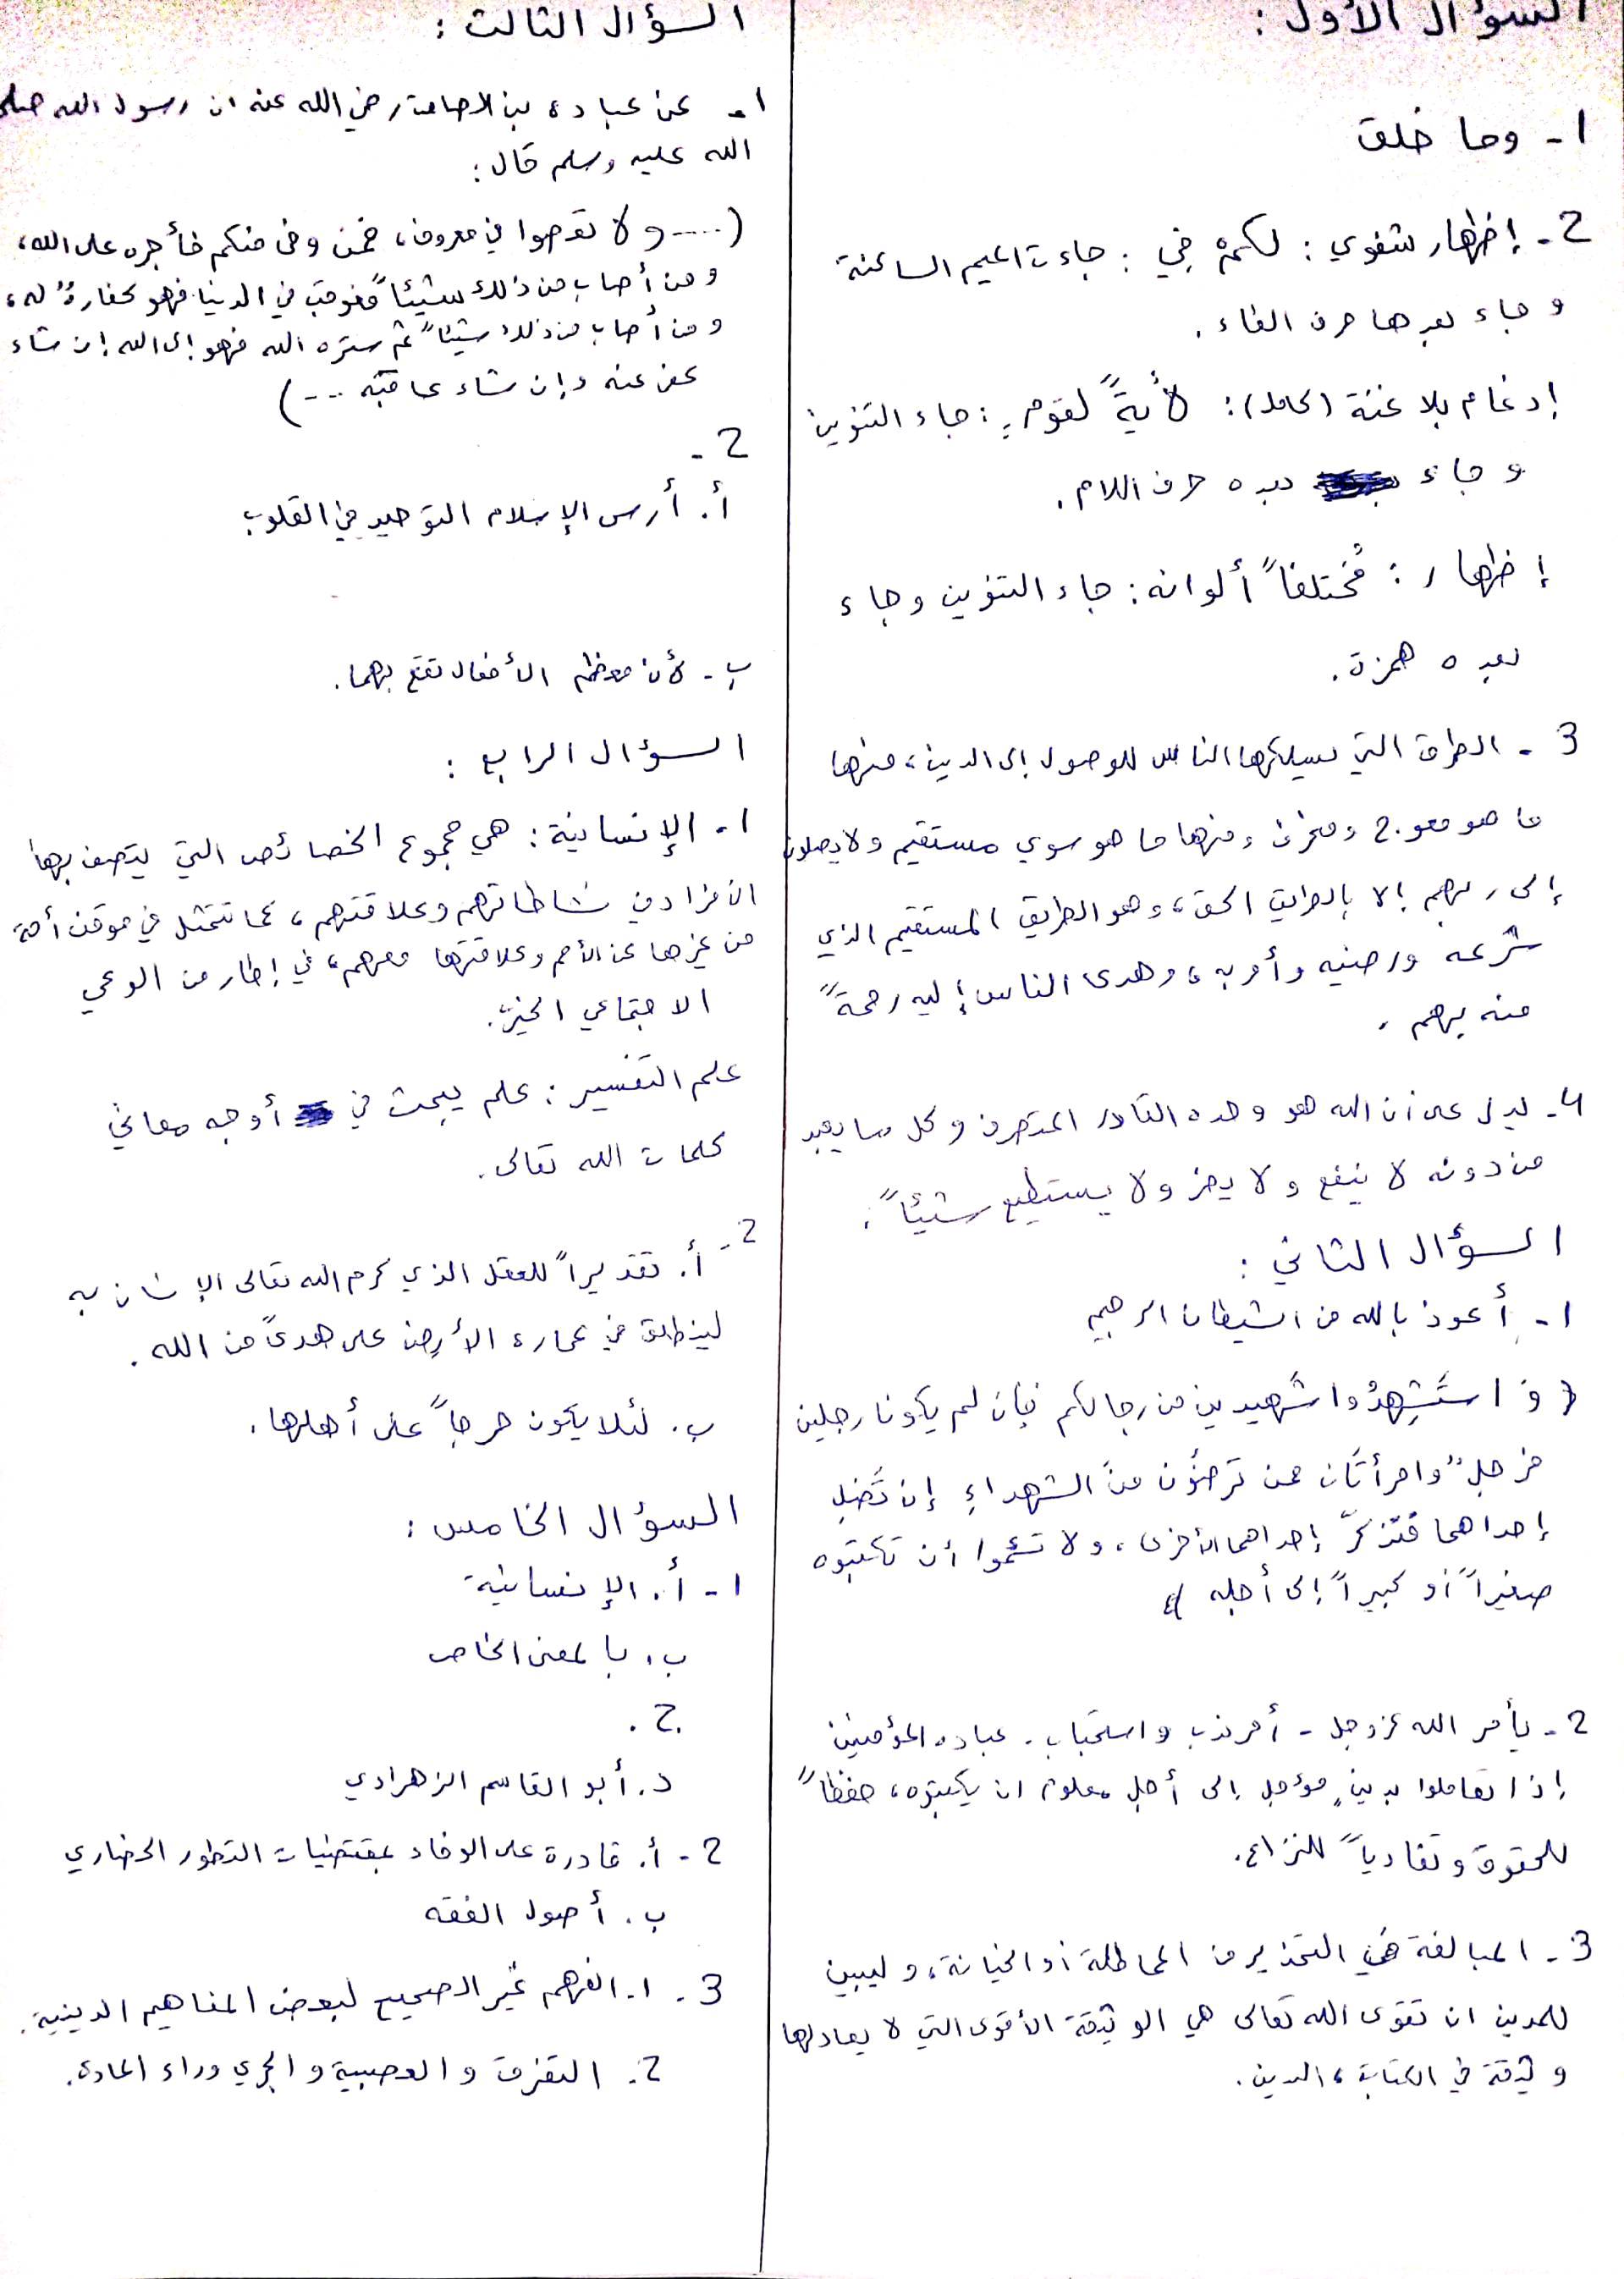 السؤال الأول :
1 - وما خلق
2 - إظهار شفوي : لكمْ في : جاءت الميم الساكنة
و جاء بعدها حرف الفاء .
إدغام بلا غنة (كامل) : لأيةً لقوم : جاء التنوين
و جاء بعده حرف اللام .
إظهار : مُختلفاً ألوانه : جاء التنوين وجاء
بعده همزة .
3 - الطرق التي يسلكها الناس للوصول إلى الدين ، منها
ما هو معوج ومنحرف ومنها ما هو سوي مستقيم ولا يصلون
إلى ربهم إلا بالطريق الحق ، وهو الطريق المستقيم الذي
شرعه ورضيه وأمر به ، وهدى الناس إليه رحمةً
منه بهم .
4 - ليدل على أن الله هو وحده القادر المتصرف وكل ما يعبد
من دونه لا ينفع و لا يضر و لا يستطيع شيئاً .
السؤال الثاني :
1 - أعوذ بالله من الشيطان الرجيم
﴿ و استَشهِدُوا شَهيدين من رجالكم فإن لم يكونا رجلين
فرجلٌ وامرأتان ممن ترضَون منَ الشهداءِ إن تَضِل
إحداهما فتذكرّ إحداهما الأخرى ، و لا تسئموا أن تكتبوه
صغيراً أو كبيراً إلى أجله ﴾
2 - يأمر الله عزوجل - أمر ندب و استحباب - عباده المؤمنين
إذا تعاملوا بدينٍ مؤجل إلى أجل معلوم ان يكتبوه ، حفظاً
للحقوق و تفادياً للنزاع .
3 - المبالغة في التحذير من المماطلة أو الخيانة ، و ليبين
للمدين ان تقوى الله تعالى هي الوثيقة الأقوى التي لا يعادلها
وثيقة في الكتابة ، الدين .
السؤال الثالث :
1 - عن عبادة بن الصامت رضي الله عنه ان رسول الله صلى
الله عليه وسلم قال :
( ..... و لا تعصوا في معروف ، فمن وفى منكم فأجره على الله ،
و من أصاب من ذلك شيئاً فعوقب في الدنيا فهو كفارةٌ له ،
و من أصاب من ذلك شيئاً ثم ستره الله فهو إلى الله إن شاء
عفى عنه وإن شاء عاقبَه ... )
2 -
أ . أرس الإسلام التوحيد في القلوب
ب - لأن معظم الأفعال تقع بهما .
السؤال الرابع :
1 - الإنسانية : هي مجموع الخصائص التي يتصف بها
الافراد في نشاطاتهم وعلاقتهم ، كما تتمثل في موقف أمة
من غيرها من الأمم وعلاقتها معهم ، في إطار من الوعي
الاجتماعي الخيّر .
علم التفسير : علم يبحث في أوجه معاني
كلمات الله تعالى .
2 - أ . تقديراً للعقل الذي كرم الله تعالى الإنسان به
لينطلق في عمارة الأرض على هدىً من الله .
ب . لئلا يكون حرجاً على أهلها .
السؤال الخامس :
1 - أ . الإنسانية
ب . بالمعنى الخاص
ج .
د . أبو القاسم الزهراوي
2 - أ . قادرة على الوفاء بمقتضيات التطور الحضاري
ب . أصول الفقه
3 - 1. الفهم غير الصحيح لبعض المفاهيم الدينية .
2. التفرق و العصبية و الجري وراء المادة .